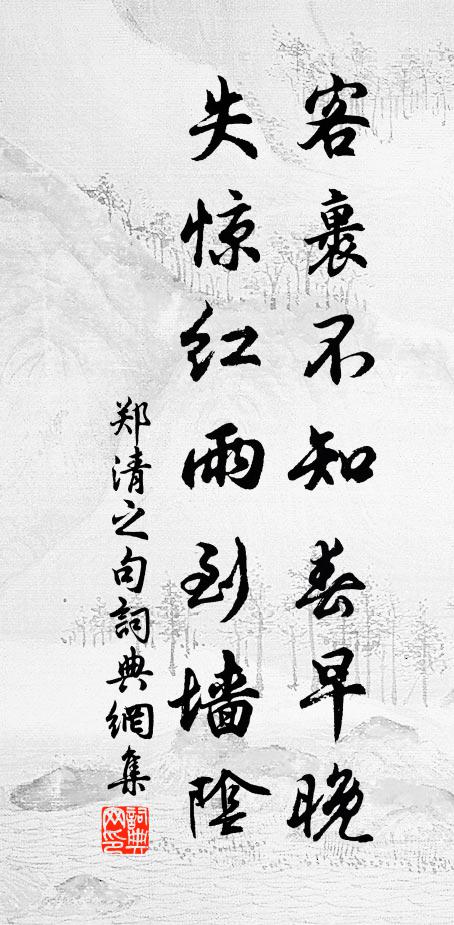 客裹不知春早晚
失惊红雨到墙阴
郑清之句詞典網集
詞典网印